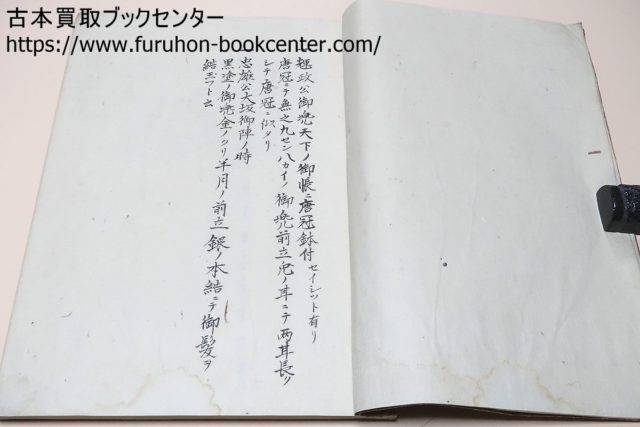 古本買取ブックセンター
https://www.furuhon-bookcenter.com/
輝政公御兜天下ノ御帳ニ唐冠鉢付セイシット有リ
唐冠ニテ無之九セン八カイノ御兜前立兎ノ耳ニテ両耳長ク
シテ唐冠ニ似タリ
忠雄公大坂御陣ノ時
黒塗ノ御兜金ノクリ半月ノ前立銀ノ本結ニテ御髪ヲ
結玉フト云